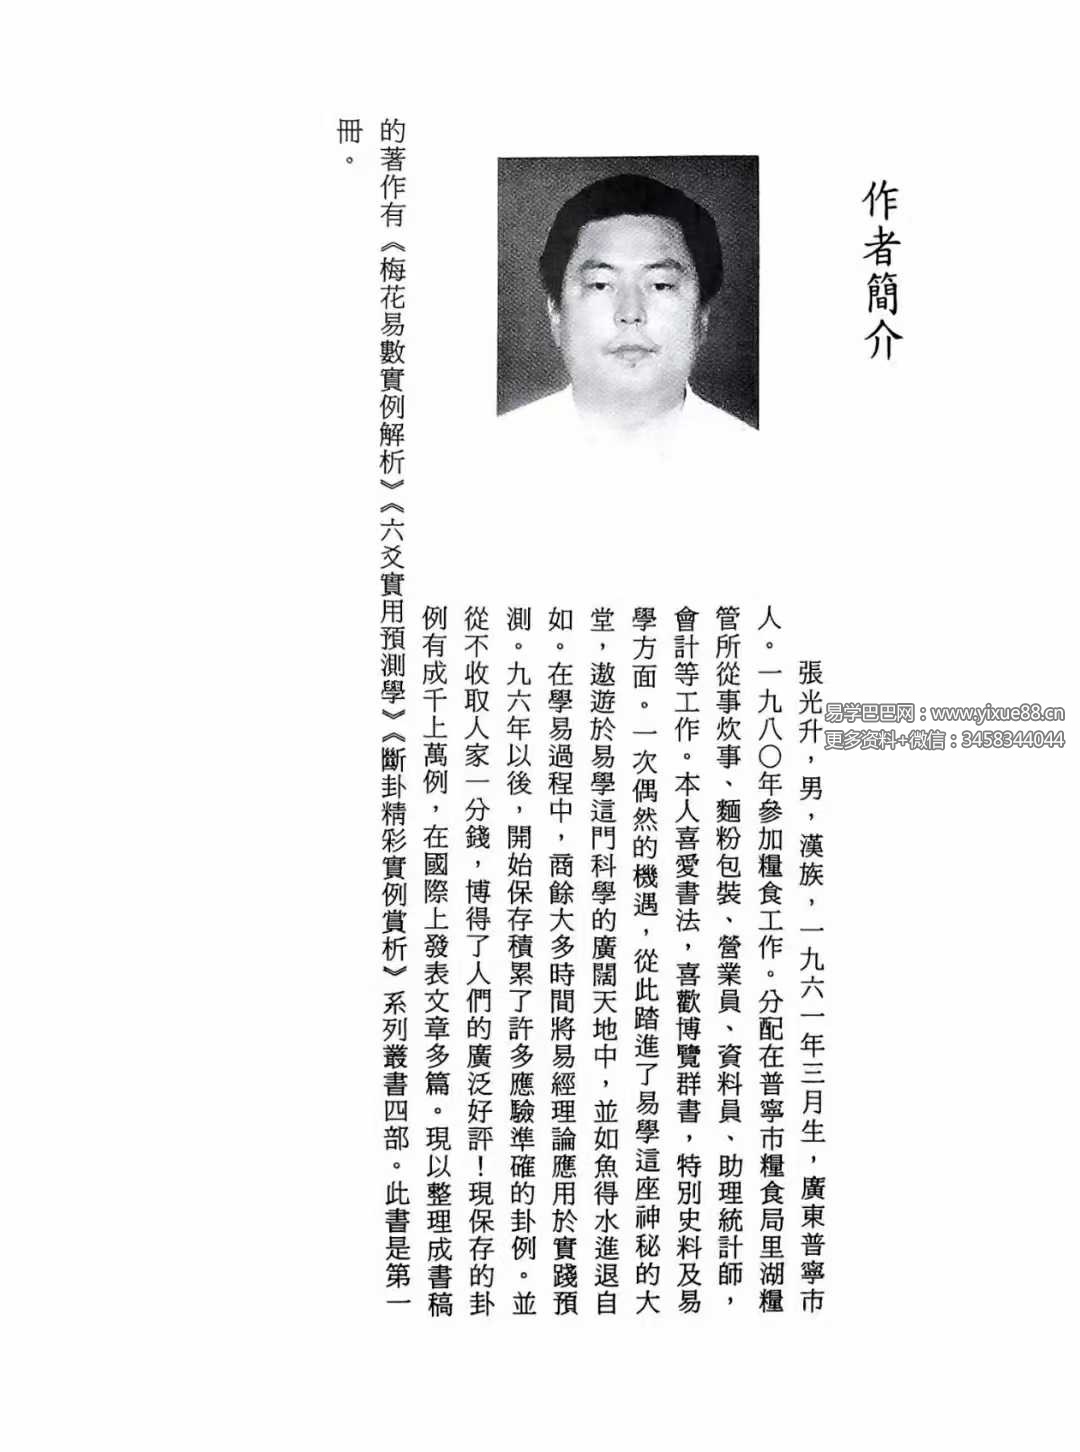 作者簡介
張光升，男，漢族，一九六一年三月生，廣東普寧市
人。一九八〇年參加糧食工作。分配在普寧市糧食局里湖糧
管所從事炊事、麵粉包裝、營業員、資料員、助理統計師，
會計等工作。本人喜愛書法，喜歡博覽群書，特別史料及易
學方面。一次偶然的機遇，從此踏進了易學這座神秘的大
堂，遨遊於易學這門科學的廣闊天地中，並如魚得水進退自
如。在學易過程中，商餘大多時間將易經理論應用於實踐預
測。九六年以後，開始保存積累了許多應驗準確的卦例。並
從不收取人家一分錢，博得了人們的廣泛好評！現保存的卦
例有成千上萬例，在國際上發表文章多篇。現以整理成書稿
的著作有《梅花易數實例解析》《六爻實用預測學》《斷卦精彩實例賞析》系列叢書四部。此書是第一
冊。
易学巴巴网：www.yixue88.cn
更多资料+微信：3458344044